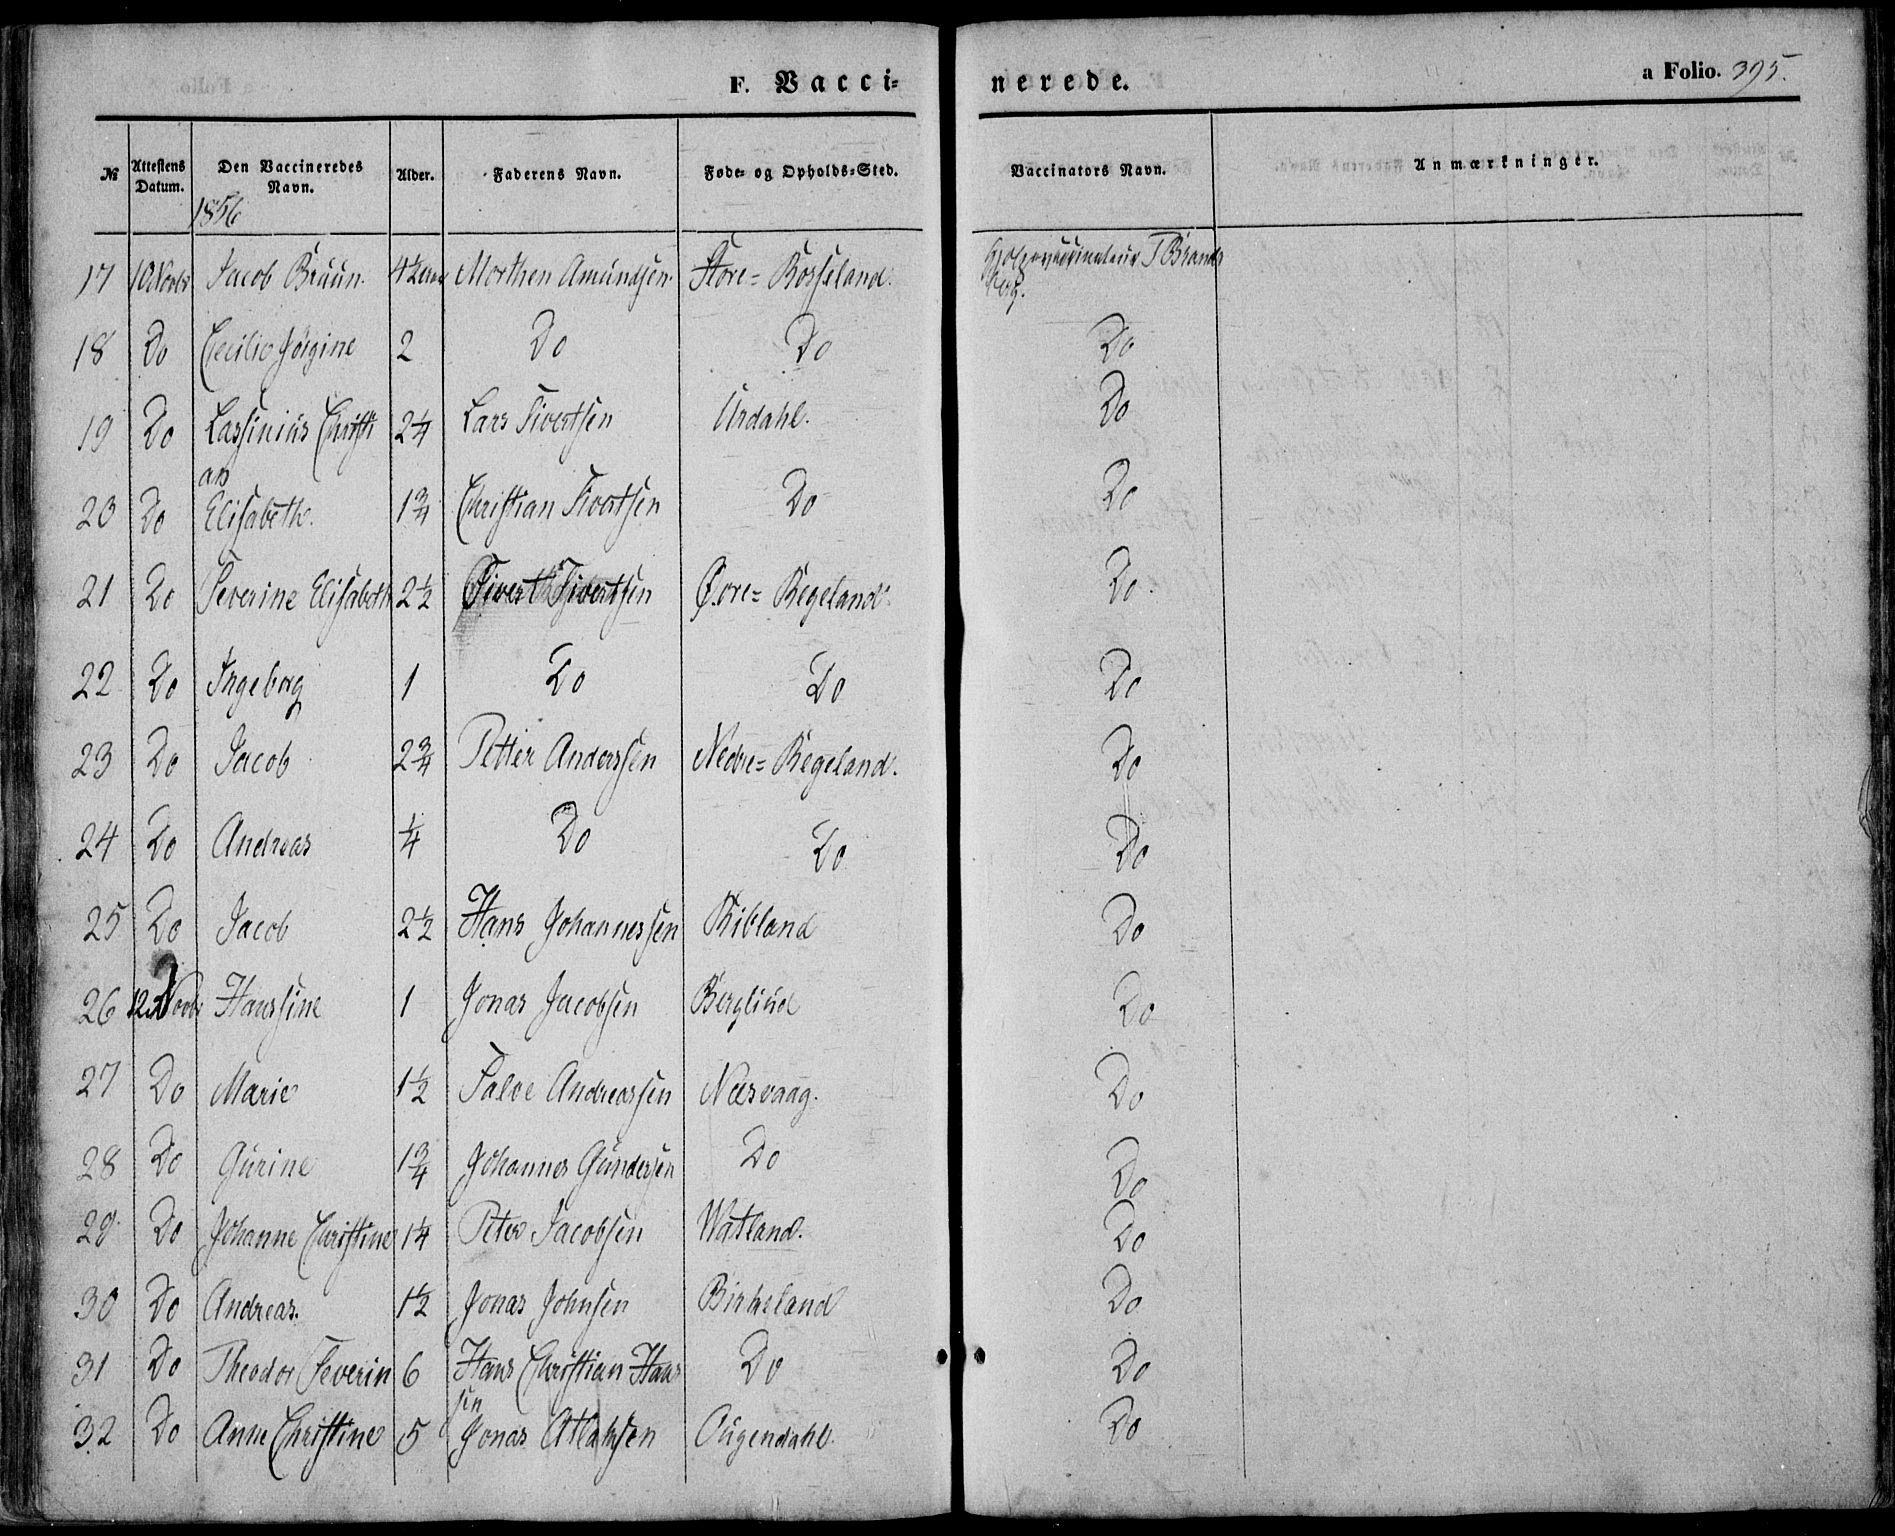 F. Vacci-nerede. a Folio. 395.
№ Attestens Datum. Den Vaccineredes Navn. Alder. Faderens Navn. Føde- og Opholds-Sted. Vaccinators Navn. Anmærkninger.
1856
17 10 Novbr Jacob Bruun. 4½ Morthen Amundsen. Store= Rosseland. T Brands
berg.
18 Do Cecilie Jørgine 2 Do Do Do
19 Do Lassinius Christi 2¼ Lars Sivertsen Urdahl. Do
an
20 Do Elisabeth. 1¾ Christian Sivertsen Do Do
21 Do Severine Elisabeth 2½ Sivert Sivertsen Øvre= Regeland. Do
22 Do Ingeborg 1 Do Do Do
23 Do Jacob 2¾ Petter Anderssen Nedre= Regeland. Do
24 Do Andreas ¼ Do Do Do
25 Do Jacob 2½ Hans Johannessen Ribland Do
26 12 Novbr Hanssine 1 Jonas Jacobsen Bergliud Do
27 Do Marie 1½ Salve Andreassen Næsvaag. Do
28 Do Gurine 1¾ Johannes Gundersen Do Do
29 Do Johanne Christine 1¼ Peter Jacobsen Watland. Do
30 Do Andreas. 1½ Jonas Johnsen Birkeland Do
31 Do Theodor Severin 6 Hans Christian Hans Do Do
sen
32 Do Anne Christine 5 Jonas Atlaksen Ougendahl. Do